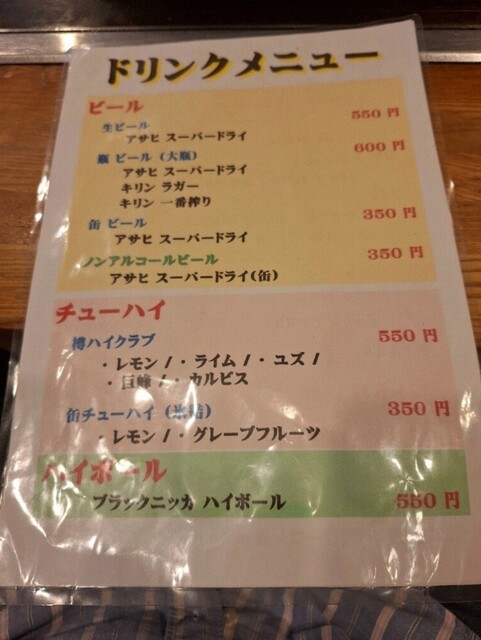 ドリンクメニュー
ビール
生ビール 550 円
アサヒ スーパードライ
瓶 ビール (大瓶) 600 円
アサヒ スーパードライ
キリン ラガー
キリン 一番搾り
缶 ビール 350 円
アサヒ スーパードライ
ノンアルコールビール 350 円
アサヒ スーパードライ(缶)
チューハイ
樽ハイクラブ 550 円
・レモン / ・ ライム / ・ ユズ /
・ 巨峰 / ・ カルピス
缶チューハイ (氷結) 350 円
・レモン / ・ グレープフルーツ
ハイボール
ブラックニッカ ハイボール 550 円